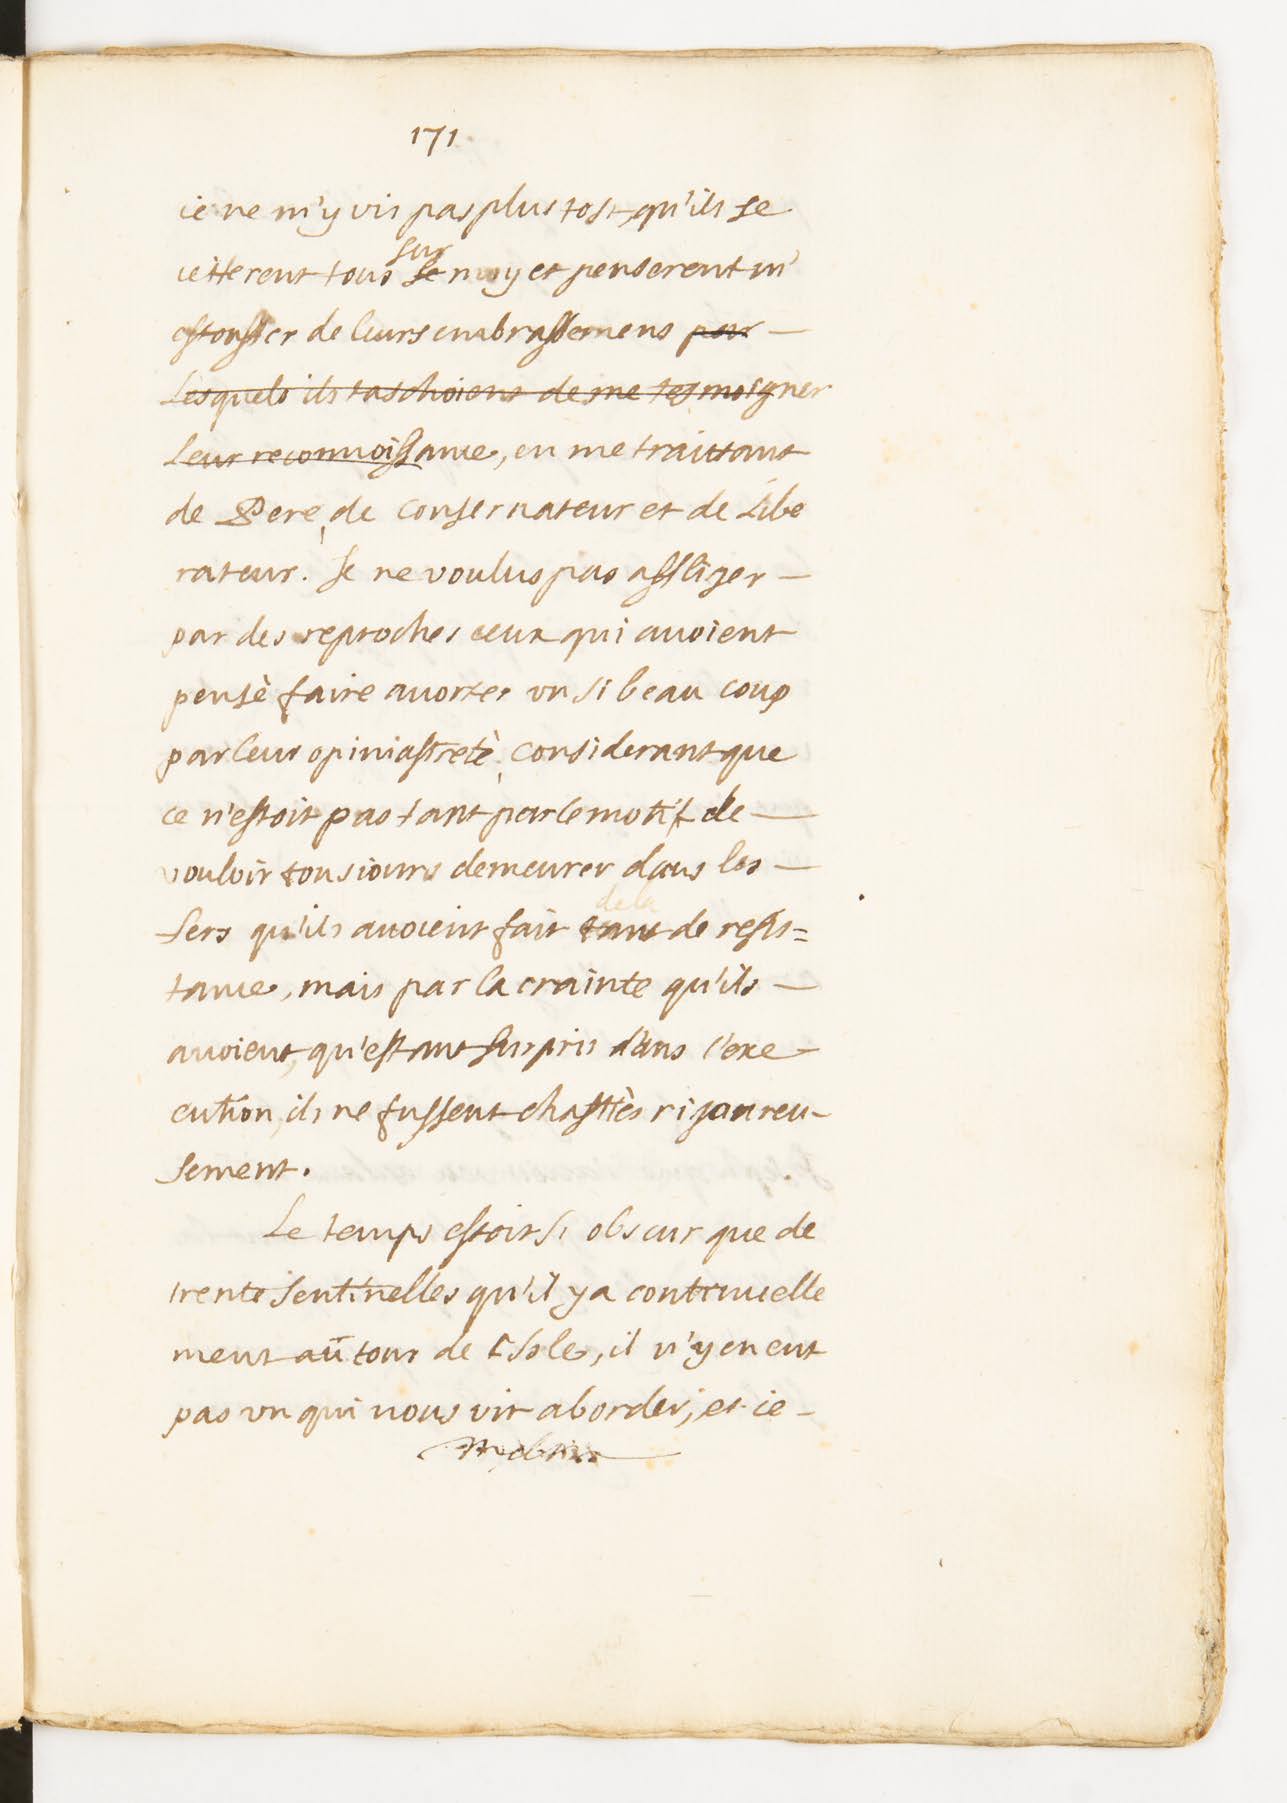 171
ie ne m'y vis pas plus tost, qu'ils se
ietterent tous sur moy et penserent m'
estouffer de leurs embrassemens par —
Lesquels ils taschoient de me tesmoigner
Leur reconnoissance, en me traittant
de Pere, de Conservateur et de Libe
rateur. Je ne voulus pas affliger —
par des reproches ceux qui avoient
pensè faire avorter vn si beau coup
par leur opiniastretè, considerant que
ce n'estoit pas tant par le motif de —
vouloir tousiours demeurer dans les —
fers qu'ils avoient fait de la resis=
tance, mais par la crainte qu'ils —
avoient, qu'estant surpris dans l'exe
cution, ils ne fussent chastiès rigoureu-
sement.
Le temps estoit si obscur que de
trente sentinelles qu'il y a continuelle
ment autour de l'Isle, il n'y en eut
pas vn qui nous vit aborder, et ie —